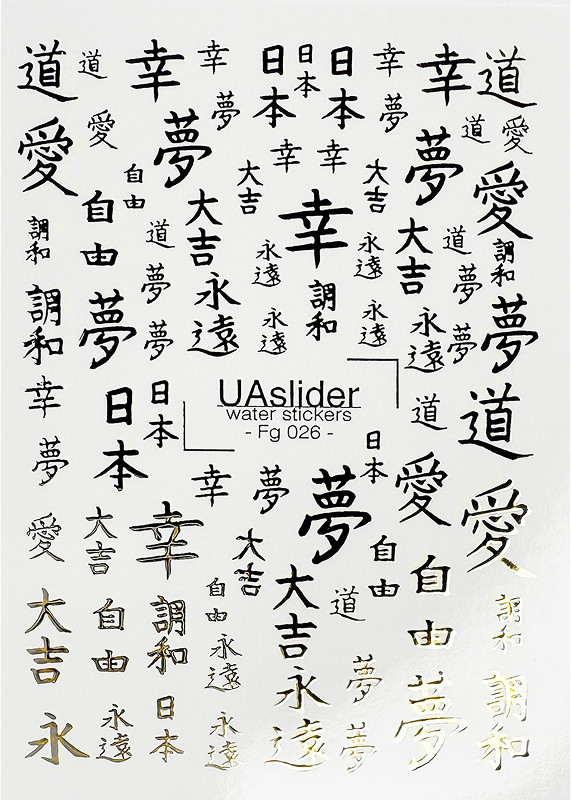 道
道
幸
幸
日本
日本
日本
幸
幸
道
愛
愛
夢
夢
夢
夢
道
愛
自由
自由
大吉
大吉
幸
幸
幸
大吉
大吉
愛
調和
道
夢
永遠
永遠
調和
永遠
永遠
道
夢
調和
調和
夢
夢
永遠
永遠
永遠
夢
夢
幸
日本
日本
UAslider
water stickers
- Fg 026 -
道
道
夢
幸
夢
夢
日本
愛
愛
愛
大吉
幸
大吉
自由
自由
大吉
自由
調和
自由
永遠
大吉
道
調和
永
永遠
日本
永遠
永遠
夢
夢
夢
調和